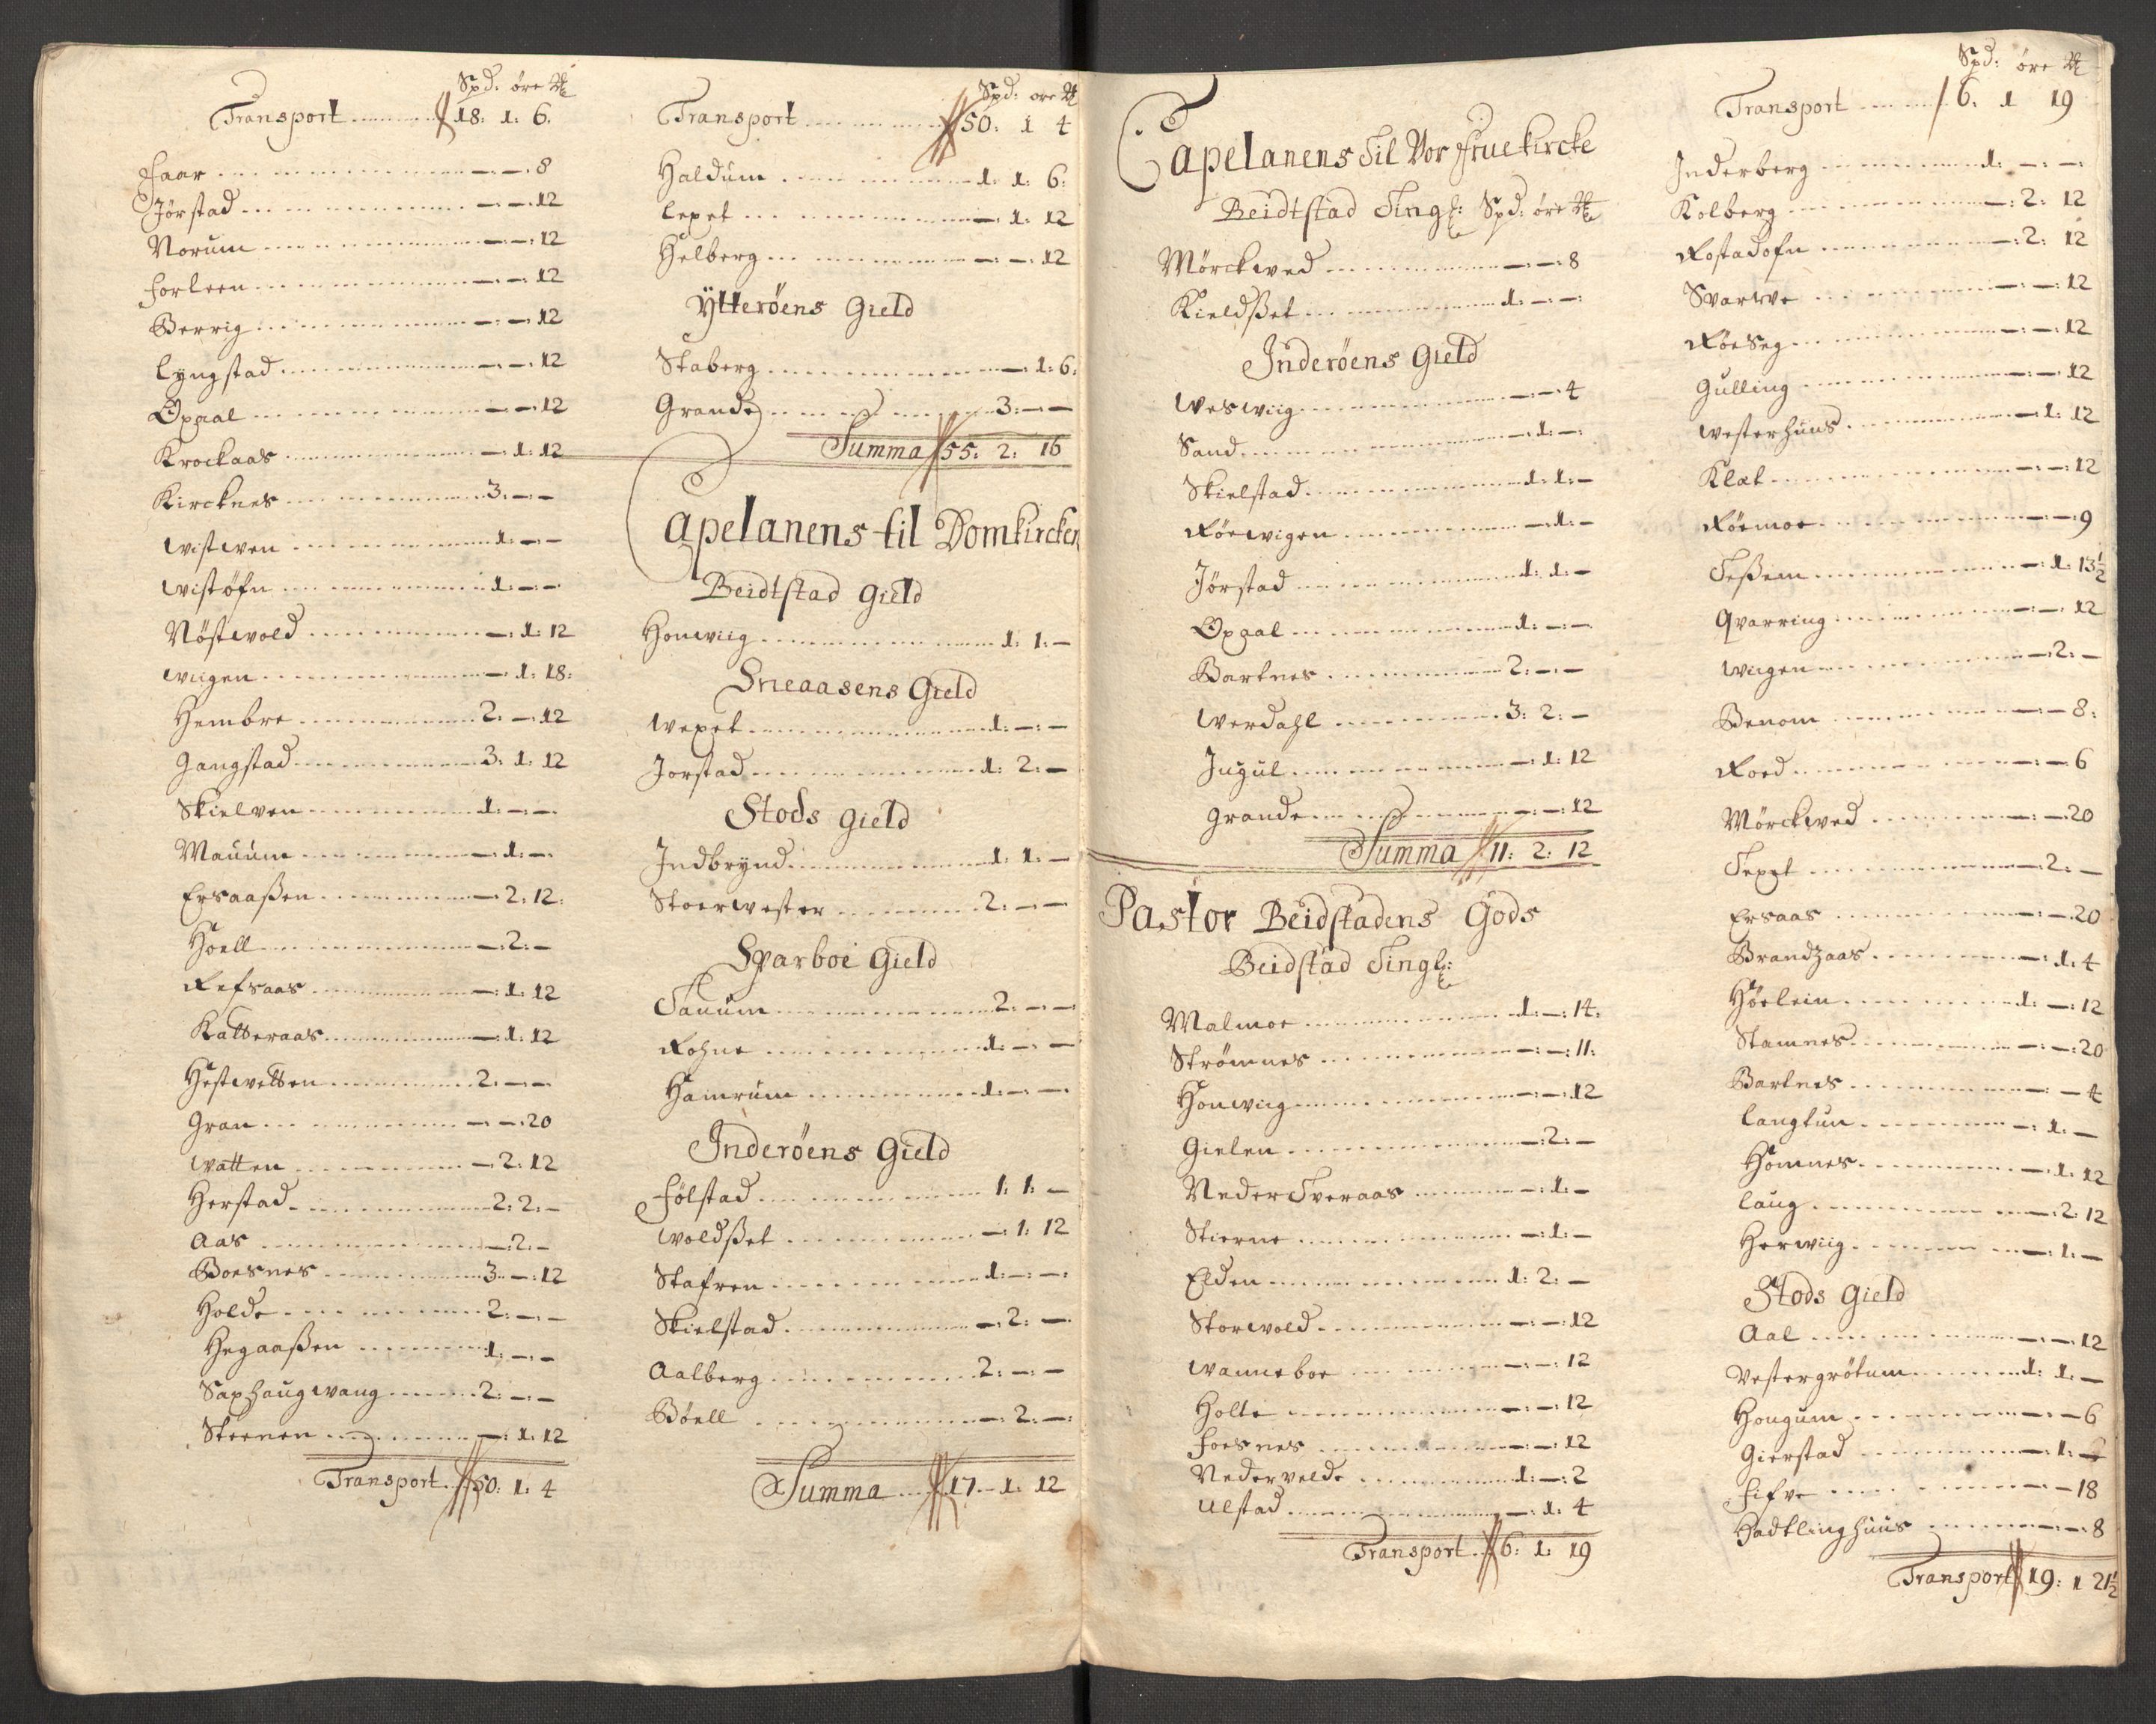 Spd: øre
Transport 18: 1: 6.
Faar – –: 8
Jørstad – –: 12
Norum – –: 12
Forleen – –: 12
Berrig – –: 12
Lyngstad – –: 12
Opaal – –: 12
Krockaas –: 1: 12
Kircknes 3: – –
wistwen 1: – –
wistøfn 1: – –
Nøstwold –: 1: 12
wiigen –: 1: 18:
Hembre 2: –: 12
Gangstad 3: 1: 12
Skielven 1: – –
Mauum –: 1: –
Ersaaßen –: 2: 12:
Høell –: 2: –
Refsaas –: 1: 12
Katteraas –: 1: 12
Hestwetten 2: – –
Gran – –: 20
watten –: 2: 12
Herstad 2: 2: –
Aas –: 2: –
Boesnes 3 –: 12
Holde 2: –: –
Hegaaßen 1: –: –
Saxhaugwang 2: –: –
Steenen –: 1: 12
Transport 50: 1: 4
Spd: ore
Transport 50: 1 4
Haldum 1: 1: 6:
Lexet –: 1: 12
Helberg –: –: 12
Ytterøens Gield
Staberg –: 1: 6:
Grande 3: – –
Summa 55: 2: 16
Capelanens til Domkircken
Beidtstad Gield
Honwiig 1: 1: –
Sneaasens Gield
Wexet 1: –: –
Jorstad 1: 2: –
Stods Gield
Indbrynd 1: 1: –
Stoerwester 2: –: –
Sparboe Gield
Sauum 2: – –
Rohne 1: – –
Hamrum 1: – –
Inderøens Gield
Følstad 1: 1: –
woldßet –: 1: 12
Stafren 1: –: –
Skielstad –: 2: –
Aalberg 2: –: –
Bøell –: 2: –:
Summa 17 – 1: 12
Capelanens Til Vor Fruekircke
Beidtstad Tingl: Spd: øre
Mørckwed –: –: 8
Kieldßet 1: –: –:
Inderøens Gield
weswiig –: –: 4
Sand –: 1: –:
Skielstad 1: 1: –
Røewigen –: 1: –
Jørstad 1: 1: –
Opaal 1: –: –
Bartnes 2: –: –
Werdahl 3: 2: –
Jugul –: 1: 12
Grande –: –: 12
Summa 11: 2: 12
Pastor Beidstadens Gods
Beidstad Tingl:
Malmoe 1: –: 14:
Strømnes –: –: 11:
Honwiig –: –: 12
Gielen –: 2: –
Neder Tveraas –: 1: –
Stierne –: 1: –
Elden 1: 2: –
Storwold –: –: 12
wanneboe –: –: 12
Holte –: –: 12
Foesnes –: –: 12
Nedervelde 1: –: 2
Ulstad –: 1: 4
Transport 6: 1: 19
Spd: øre
Transport 6: 1 19
Inderberg 1: –: –:
Kolberg –: 2: 12
Rostadofn –: 2: 12
Svarwe –: –: 12
Røeseg –: –: 12
Gulling –: –: 12
westerhuus –: 1: 12
Klæt –: –: 12
Røemoe –: –: 9
Teßem –: 1: 13½
Qvarring –: –: 12
wiigen –: 2: –
Benom –: – 8:
Roed –: –: 6
Mørckwed –: –: 20
Texet –: 2: –
Ersaas –: –: 20
Brandzaas –: 1: 4
Høelein 1: –: 12
Stamnes –: –: 20
Bartnes –: – 4
Langtun –: 1: –
Homnes –: 1: 12
Laug –: 2: 12
Herwiig –: 1: –
Stods Gield
Aal –: –: 12
Vestergrøtum 1: 1: –
Hougum –: – 6
Gierstad –: 1: –
Fifve –: – 18
Hadtlinghuus –: –: 8
Transport 19: 1 21½